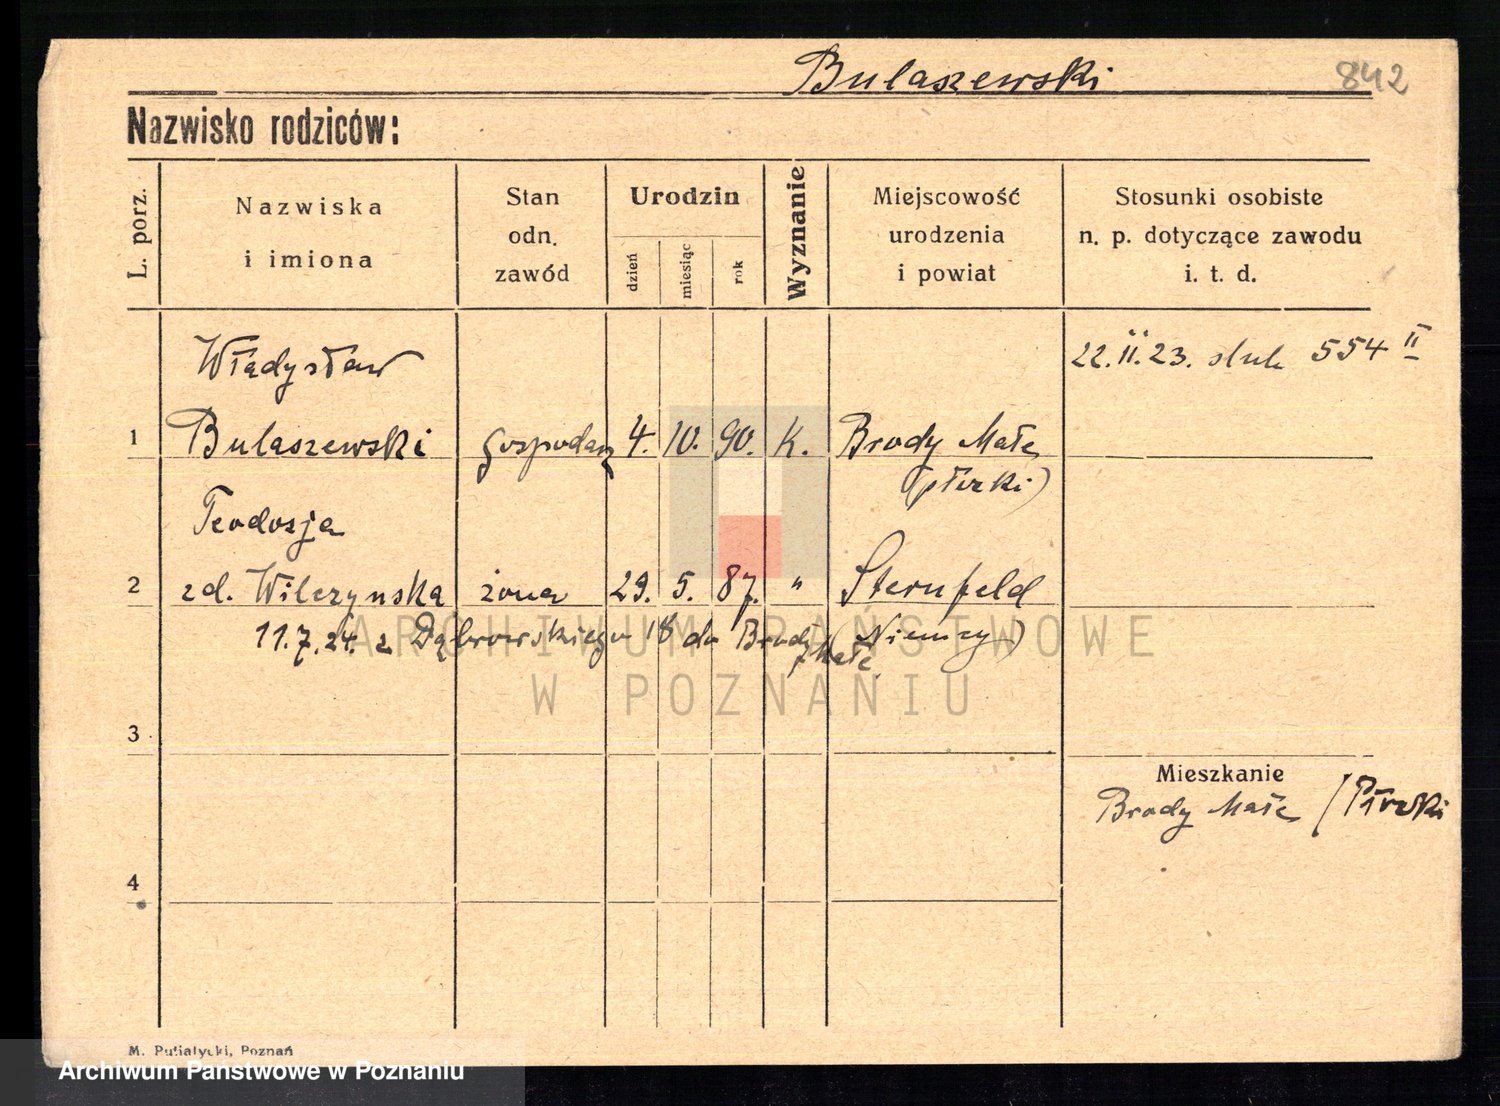 Bulaszewski 842
Nazwisko rodziców:
L. porz.
Nazwiska
i imiona
Stan
odn.
zawód
Urodzin
dzień
miesiąc
rok
Wyznanie
Miejscowość
urodzenia
i powiat
Stosunki osobiste
n. p. dotyczące zawodu
i. t. d.
Władysław
22. II. 23. ślub 554 II
1 Bulaszewski gospodarz 4. 10. 90. K. Brody Małe
Teodozja
2 zd. Wilczynska żona 29. 5. 87. " Sternfeld
(Niemcy)
11.7.24. z Dąbrowskiego 18 do Brody Małe
3
Mieszkanie
Brody Małe
4
ARCHIWUM PAŃSTWOWE
W POZNANIU
M. Putiatycki, Poznań
Archiwum Państwowe w Poznaniu